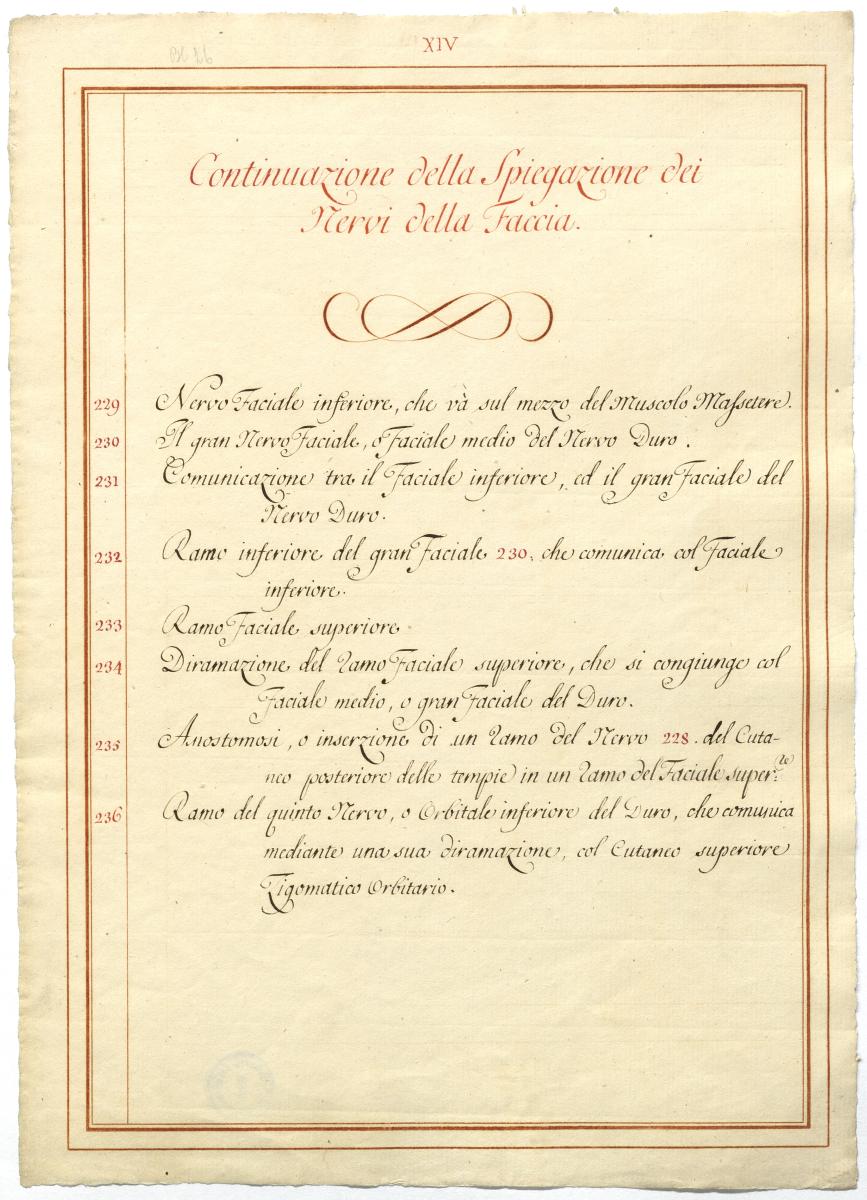 XIV
Continuazione della Spiegazione dei
Nervi della Faccia.
229 Nervo Faciale inferiore, che và sul mezzo del Muscolo Massetere.
230 Il gran Nervo Faciale, o Faciale medio del Nervo Duro.
231 Comunicazione tra il Faciale inferiore, ed il gran Faciale del
Nervo Duro.
232 Ramo inferiore del gran Faciale 230. che comunica col Faciale
inferiore.
233 Ramo Faciale superiore
234 Diramazione del Ramo Faciale superiore, che si congiunge col
Faciale medio, o gran Faciale del Duro.
235 Anostomosi, o inserzione di un Ramo del Nervo 228. del Cuta-
neo posteriore delle tempie in un Ramo del Faciale super.re
236 Ramo del quinto Nervo, o Orbitale inferiore del Duro, che comunica
mediante una sua diramazione, col Cutaneo superiore
Zigomatico Orbitario.